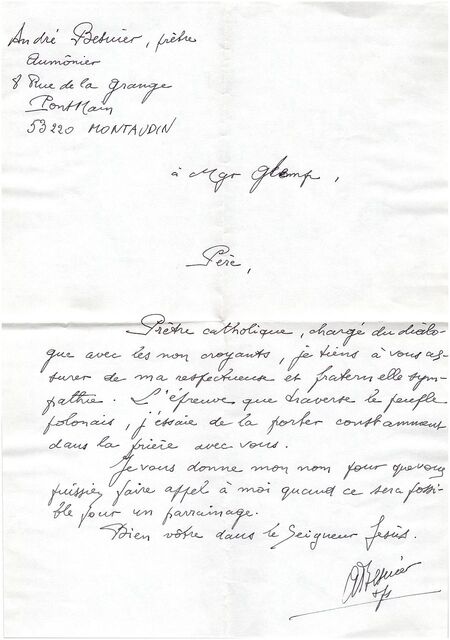 André Besnier, prêtre
aumônier
8 Rue de la Grange
PontMain
53220 MONTAUDIN
à Mgr Glemp,
Père,
Prêtre catholique, chargé du dialo-
gue avec les non croyants, je tiens à vous as-
surer de ma respectueuse et fraternelle sym-
pathie. L'épreuve que traverse le peuple
polonais, j'essaie de la porter constamment
dans la prière avec vous.
Je vous donne mon nom pour que vous
puissiez faire appel à moi quand ce sera possi-
ble pour un parrainage.
Bien vôtre dans le Seigneur Jésus.
ABesnier